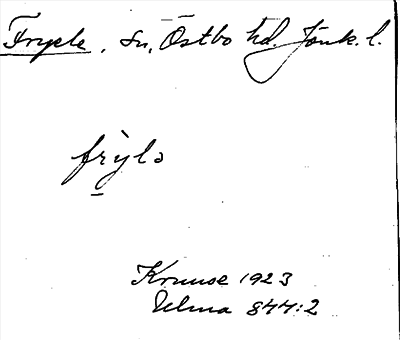 Fryele, sn, Östbo hd. Jönk. l.
frỳlə
Kruuse 1923
Ulma 844:2